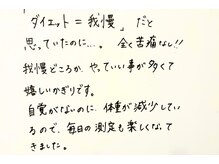 「ダイエット=我慢」だと
思っていたのに…。全く苦痛なし!!
我慢どころか、やっていい事が多くて
嬉しいかぎりです。
自覚がないのに、体重が減少してい
るので、毎日の測定も楽しくなって
きました。